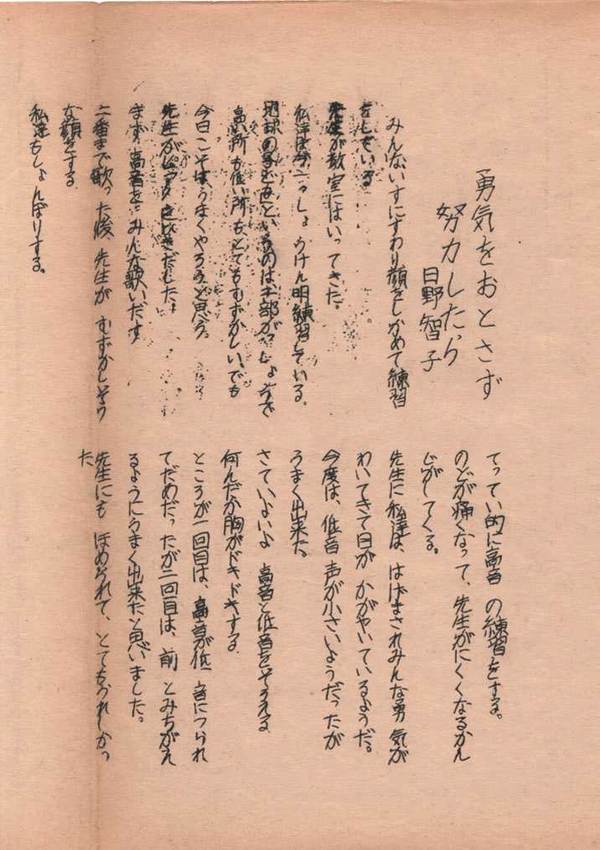 勇気をおとさず
努力したら
日野智子
みんないすにすわり顔をしかめて練習
をしている
先生が教室にはいってきた。
私達は今いっしょうけん明練習している。
地球の子どもというのは、
高い所も低い所もとてもむずかしい、でも
今日こそは、うまくやろうと思う。
先生がピアノをひきだした。
まず、高音を、みんな歌いだす
二番まで歌った後、先生が むずかしそう
な顔をする
私達もしょんぼりする。
てってい的に高音の練習をする。
のどが痛くなって、先生がにくくなるかん
じがしてくる。
先生に私達は、はげまされみんな勇気が
わいてきて目が かがやいているようだ。
今度は、低音 声が小さいようだったが
うまく出来た。
さていよいよ 高音と低音をそろえる
何んだか胸がドキドキする。
ところが一回目は、高音が低音につられ
てだめだったが二回目は、前とみちがえ
るようにうまく出来たと思いました。
先生にも ほめられて、とてもうれしかっ
た